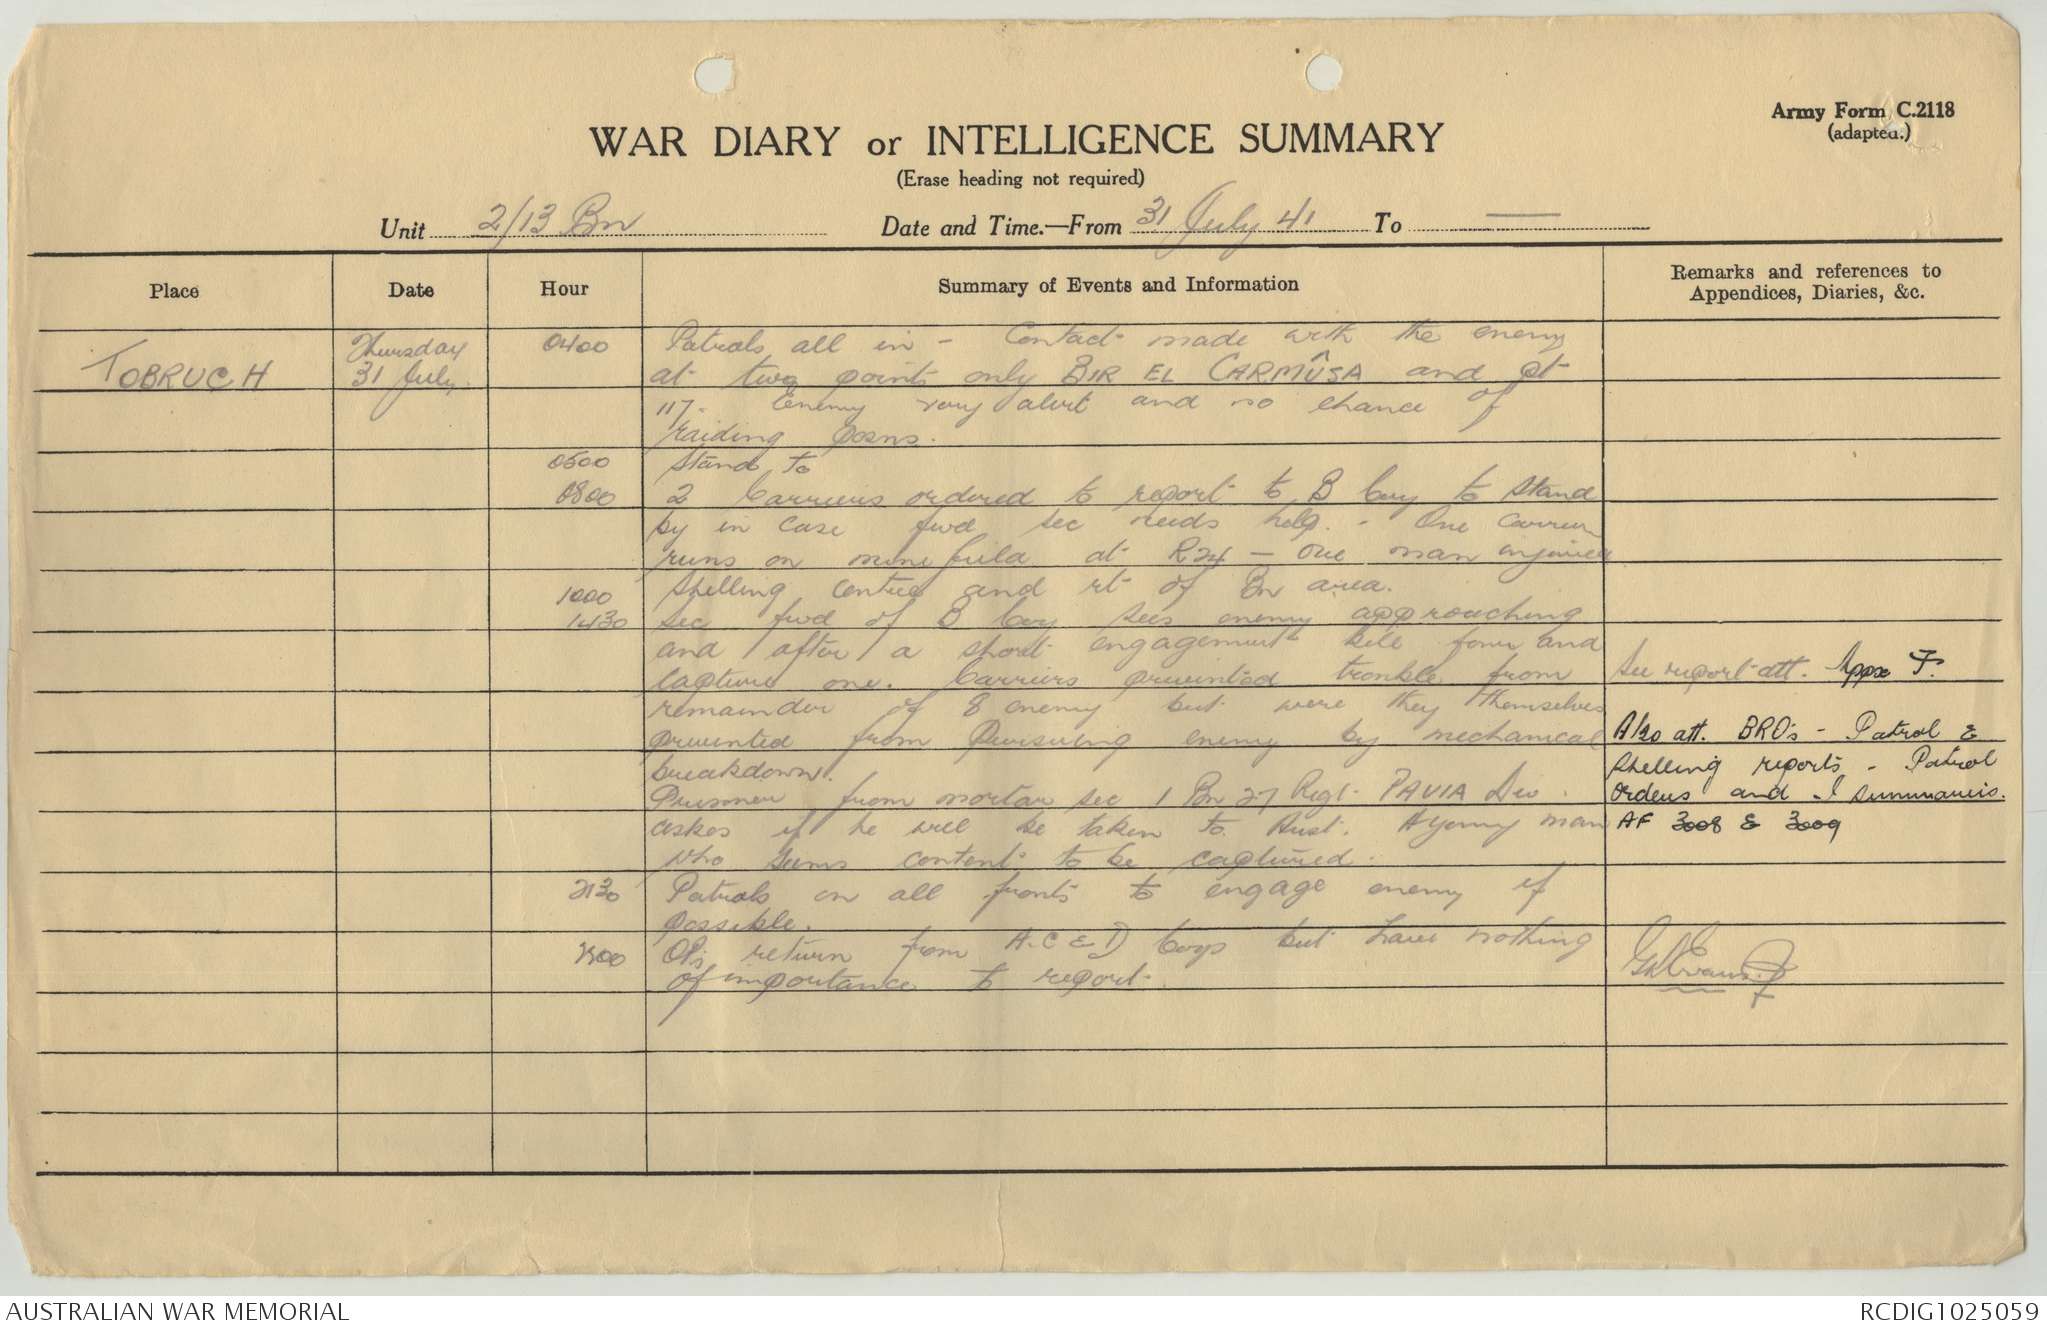 Army Form C.2118
(adapted.)
WAR DIARY or INTELLIGENCE SUMMARY
(Erase heading not required)
Unit 2/13 Bn Date and Time.—From 31 July 41 To —
Place Date Hour Summary of Events and Information Remarks and references to
Appendices, Diaries, &c.
TOBRUCH Thursday 31 July. 0400 Patrols all in – Contact made with the enemy
at two points only BIR EL CARMÛSA and pt
117. Enemy very alert and no chance of
raiding posns.
0500 Stand to
0800 2 Carriers ordered to report to B Coy to stand
by in case fwd sec needs help. - One carrier
runs on minefield at R24 – one man injured
1000 Shelling centre and rt of Bn area.
1430 Sec fwd of B Coy sees enemy approaching
and after a short engagement kill four and
capture one. Carriers prevented trouble from See report att. Appx F.
remainder of 8 enemy but were they themselves
prevented from pursuing enemy by mechanical Also att. BRO's - Patrol &
breakdown. Shelling reports - Patrol
Prisoner from mortar sec 1 Bn 27 Regt PAVIA Div. orders and I Summaries.
askes if he will be taken to Aust. A young man AF 3008 & 3009
who seems content to be captured.
2130 Patrols on all fronts to engage enemy if
possible.
OPs return from A.C & D Coys but have nothing
of importance to report. Evans
AUSTRALIAN WAR MEMORIAL RCDIG1025059